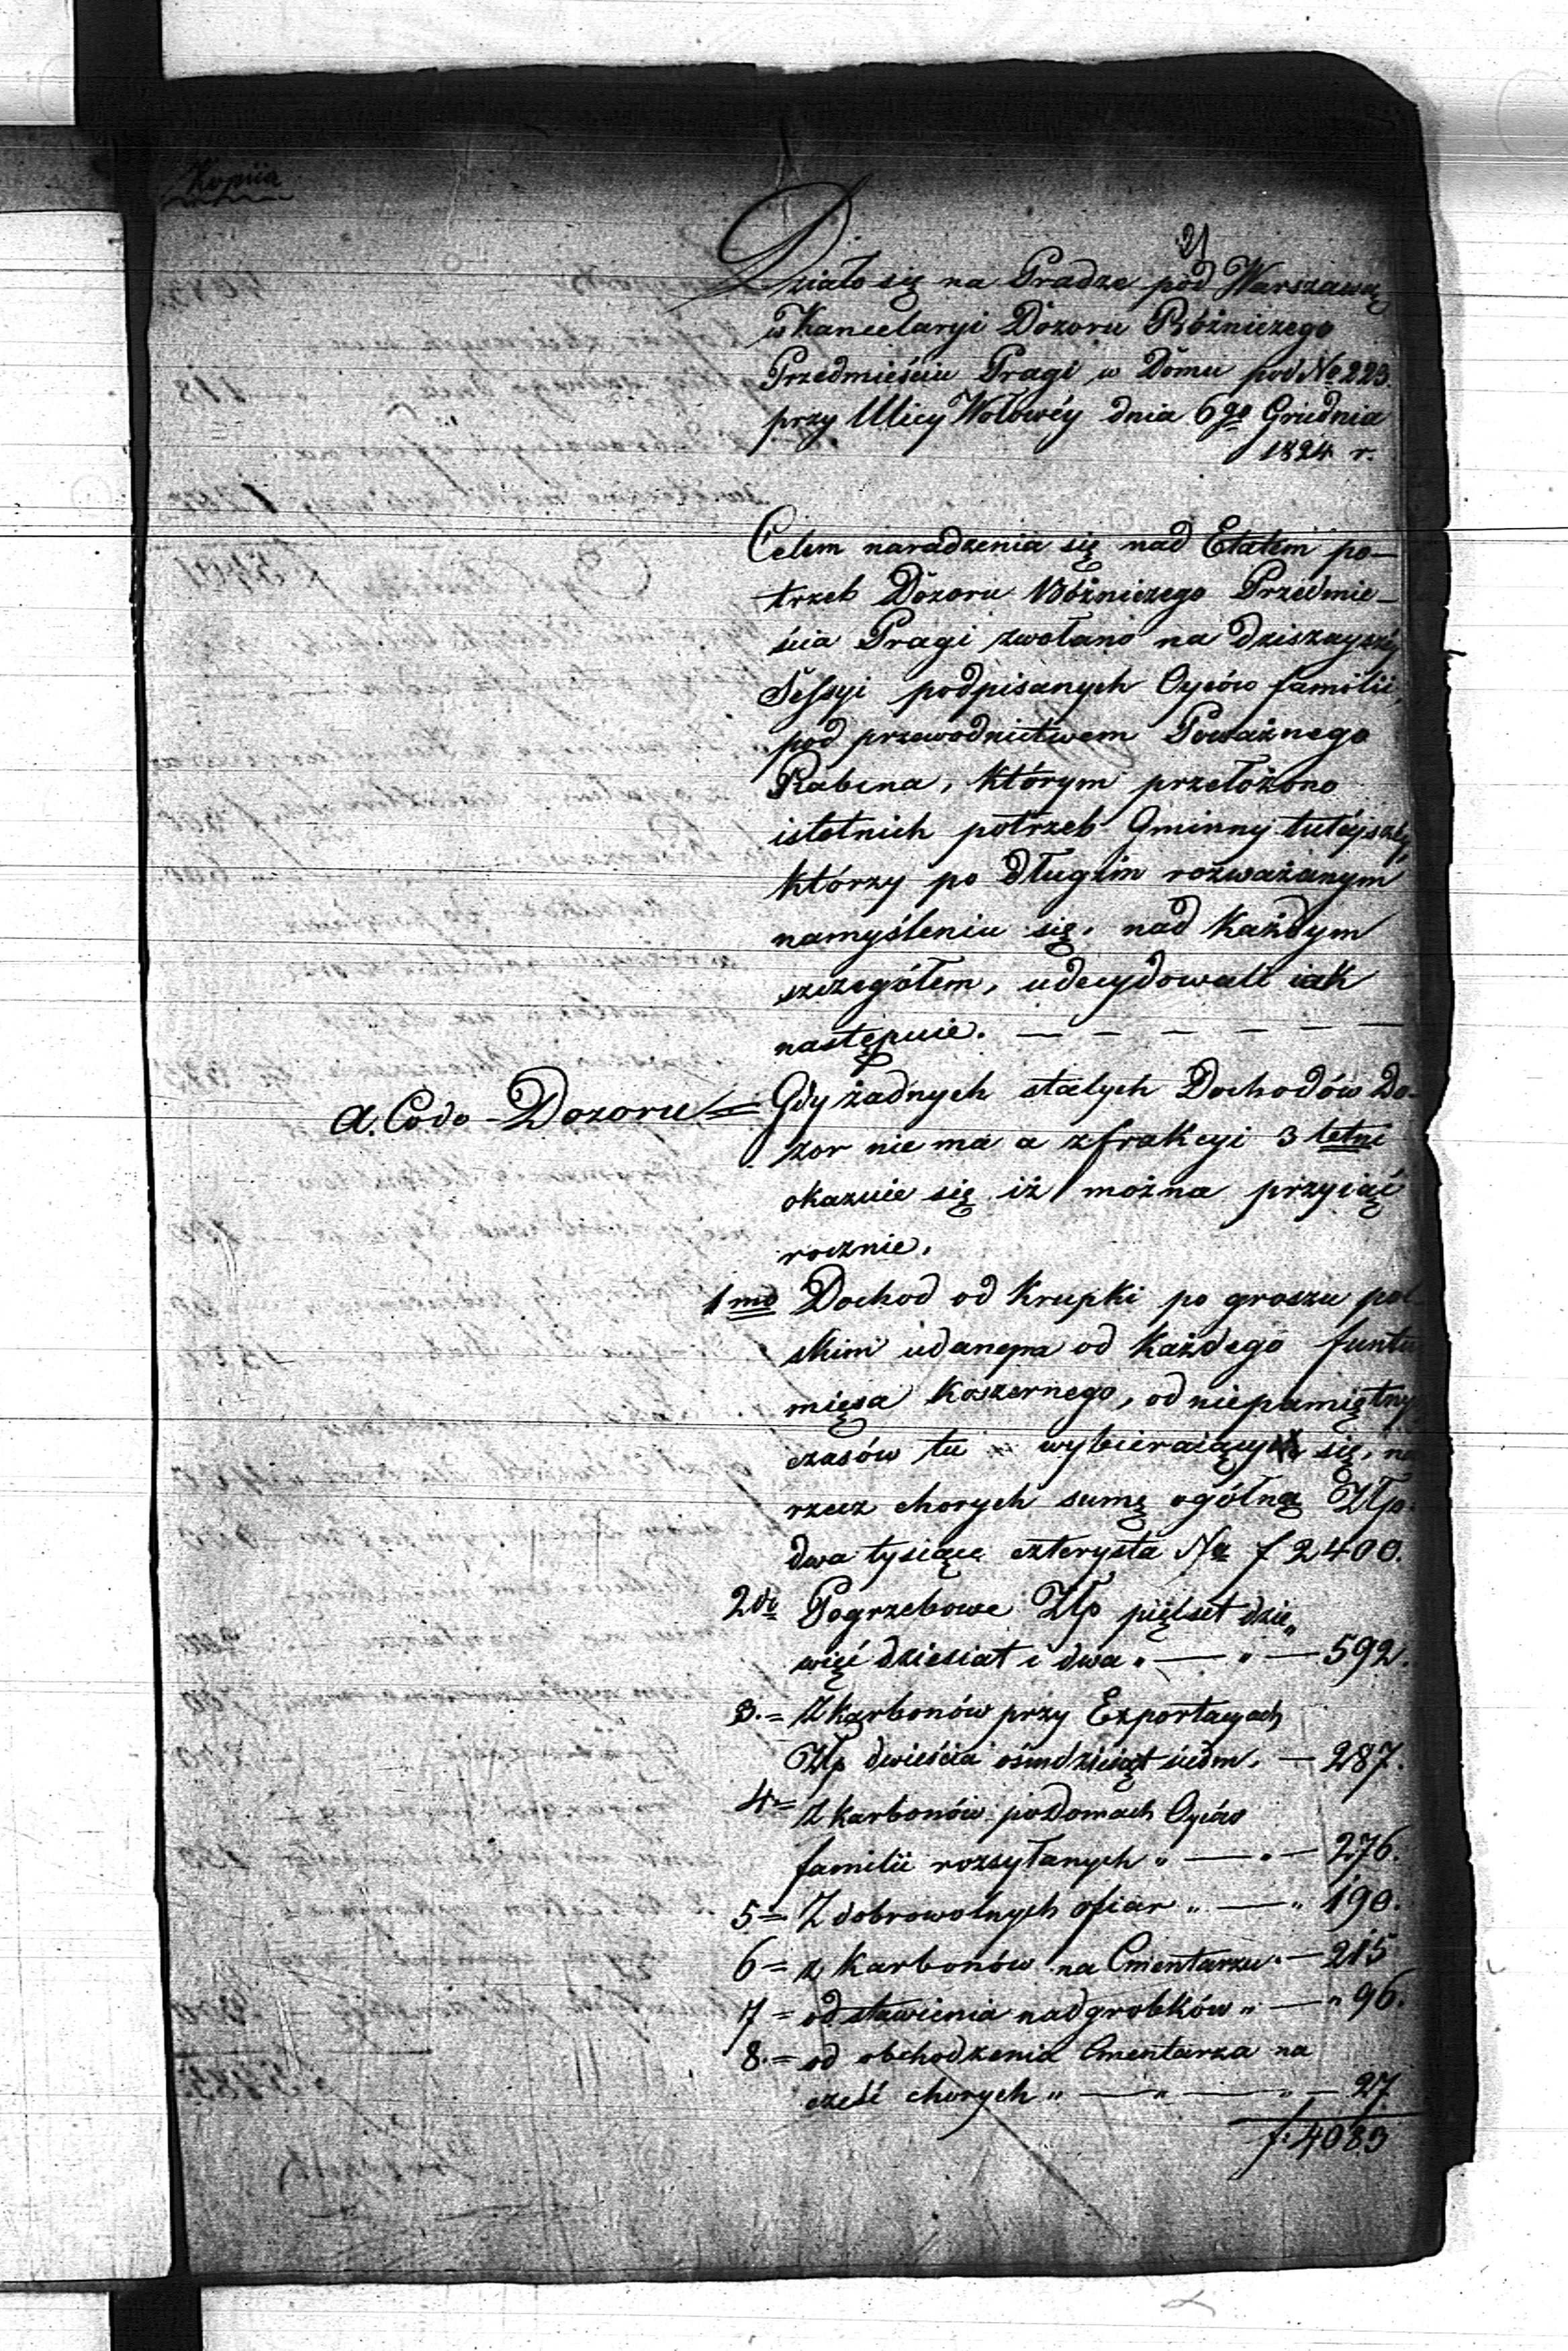 Kopiia
21
Działo się na Pradze pod Warszawą
w Kancelaryi Dozoru Bóżniczego
Przedmieściu Pragi w Domu pod No 223.
przy Ulicy Wołowéy dnia 6go Grudnia
1824 r.
Celem naradzenia się nad Etatem po-
trzeb Dozoru Bóżniczego Przedmie-
ścia Pragi zwołano na dziszayszéy
Sessyi podpisanych Oyców familii,
pod przewodnictwem Poważnego
Rabina, którym przełożono
istotnich potrzeb Gminny tutéyszéy,
którzy po długim rozważanym
namyśleniu się, nad każdym
szczegółem, udecydowali iak
następuie. — — — — — —
a. Co do Dozoru = Gdy żadnych stałych Dochodów Do-
zor nie ma a z frakcyi 3 letni
okazuie się iż można przyiąć
rocznie.
1mo Dochod od Krupki po groszu pol-
skim od każdego funtu
mięsa koszernego, od niepamiętny
czasów tu wybieraiących się, na
rzecz chorych sumę ogólną Złp.
dwa tysiące czterysta No f 2400.
2do Pogrzebowe Złp pięćset dzie„
więćdziesiat i dwa „ — „ — 592.
3. = Z karbonów przy Exportacyach
Złp dwieścia ośmdziesiąt siedm. — 287.
4 = Z karbonów po Domach Oyców
familii rozsyłanych „ — „ — 276.
5 = Z dobrowolnych ofiar „ — „ 190.
6 = z Karbonów na Cmentarzu. — 215
7 = od stawienia nadgrobków „ — „ 96.
8. = od obchodzenia Cmentarza na
cześć chorych „ — „ — „ — 27
f: 4083